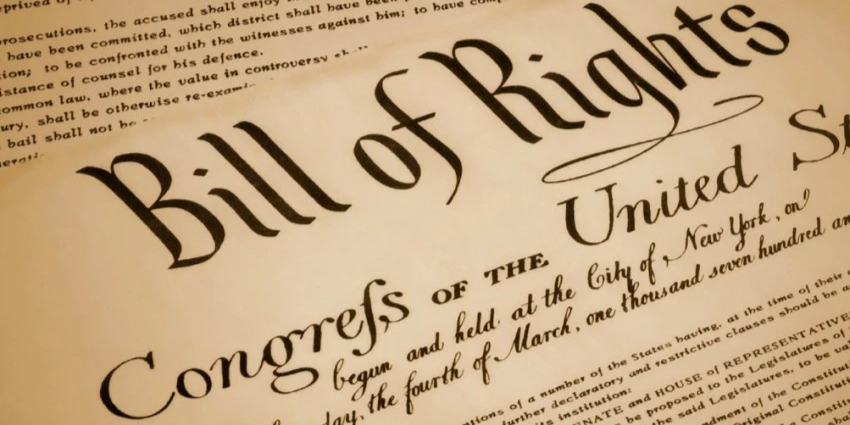 prived of
rosecutions, the accused shall enjoy
have been committed, which district shall have been
ion; to be confronted with the witnesses against him; to have com
istance of counsel for his defence.
ommon law, where the value in controversy shall
ury, shall be otherwise re-exami
bail shall not be
Bill of Rights
Congreſs OF THE United St
begun and held at the City of New York, on
day, the fourth of March, one thousand seven hundred an
tions of a number of the States having, at the time of their
further declaratory and restrictive clauses should be a
its institution:
NATE and HOUSE of REPRESENTATIVE
be proposed to the Legislatures of
the said Legislatures, to be val
ndment of the Constitut
Original Constitution